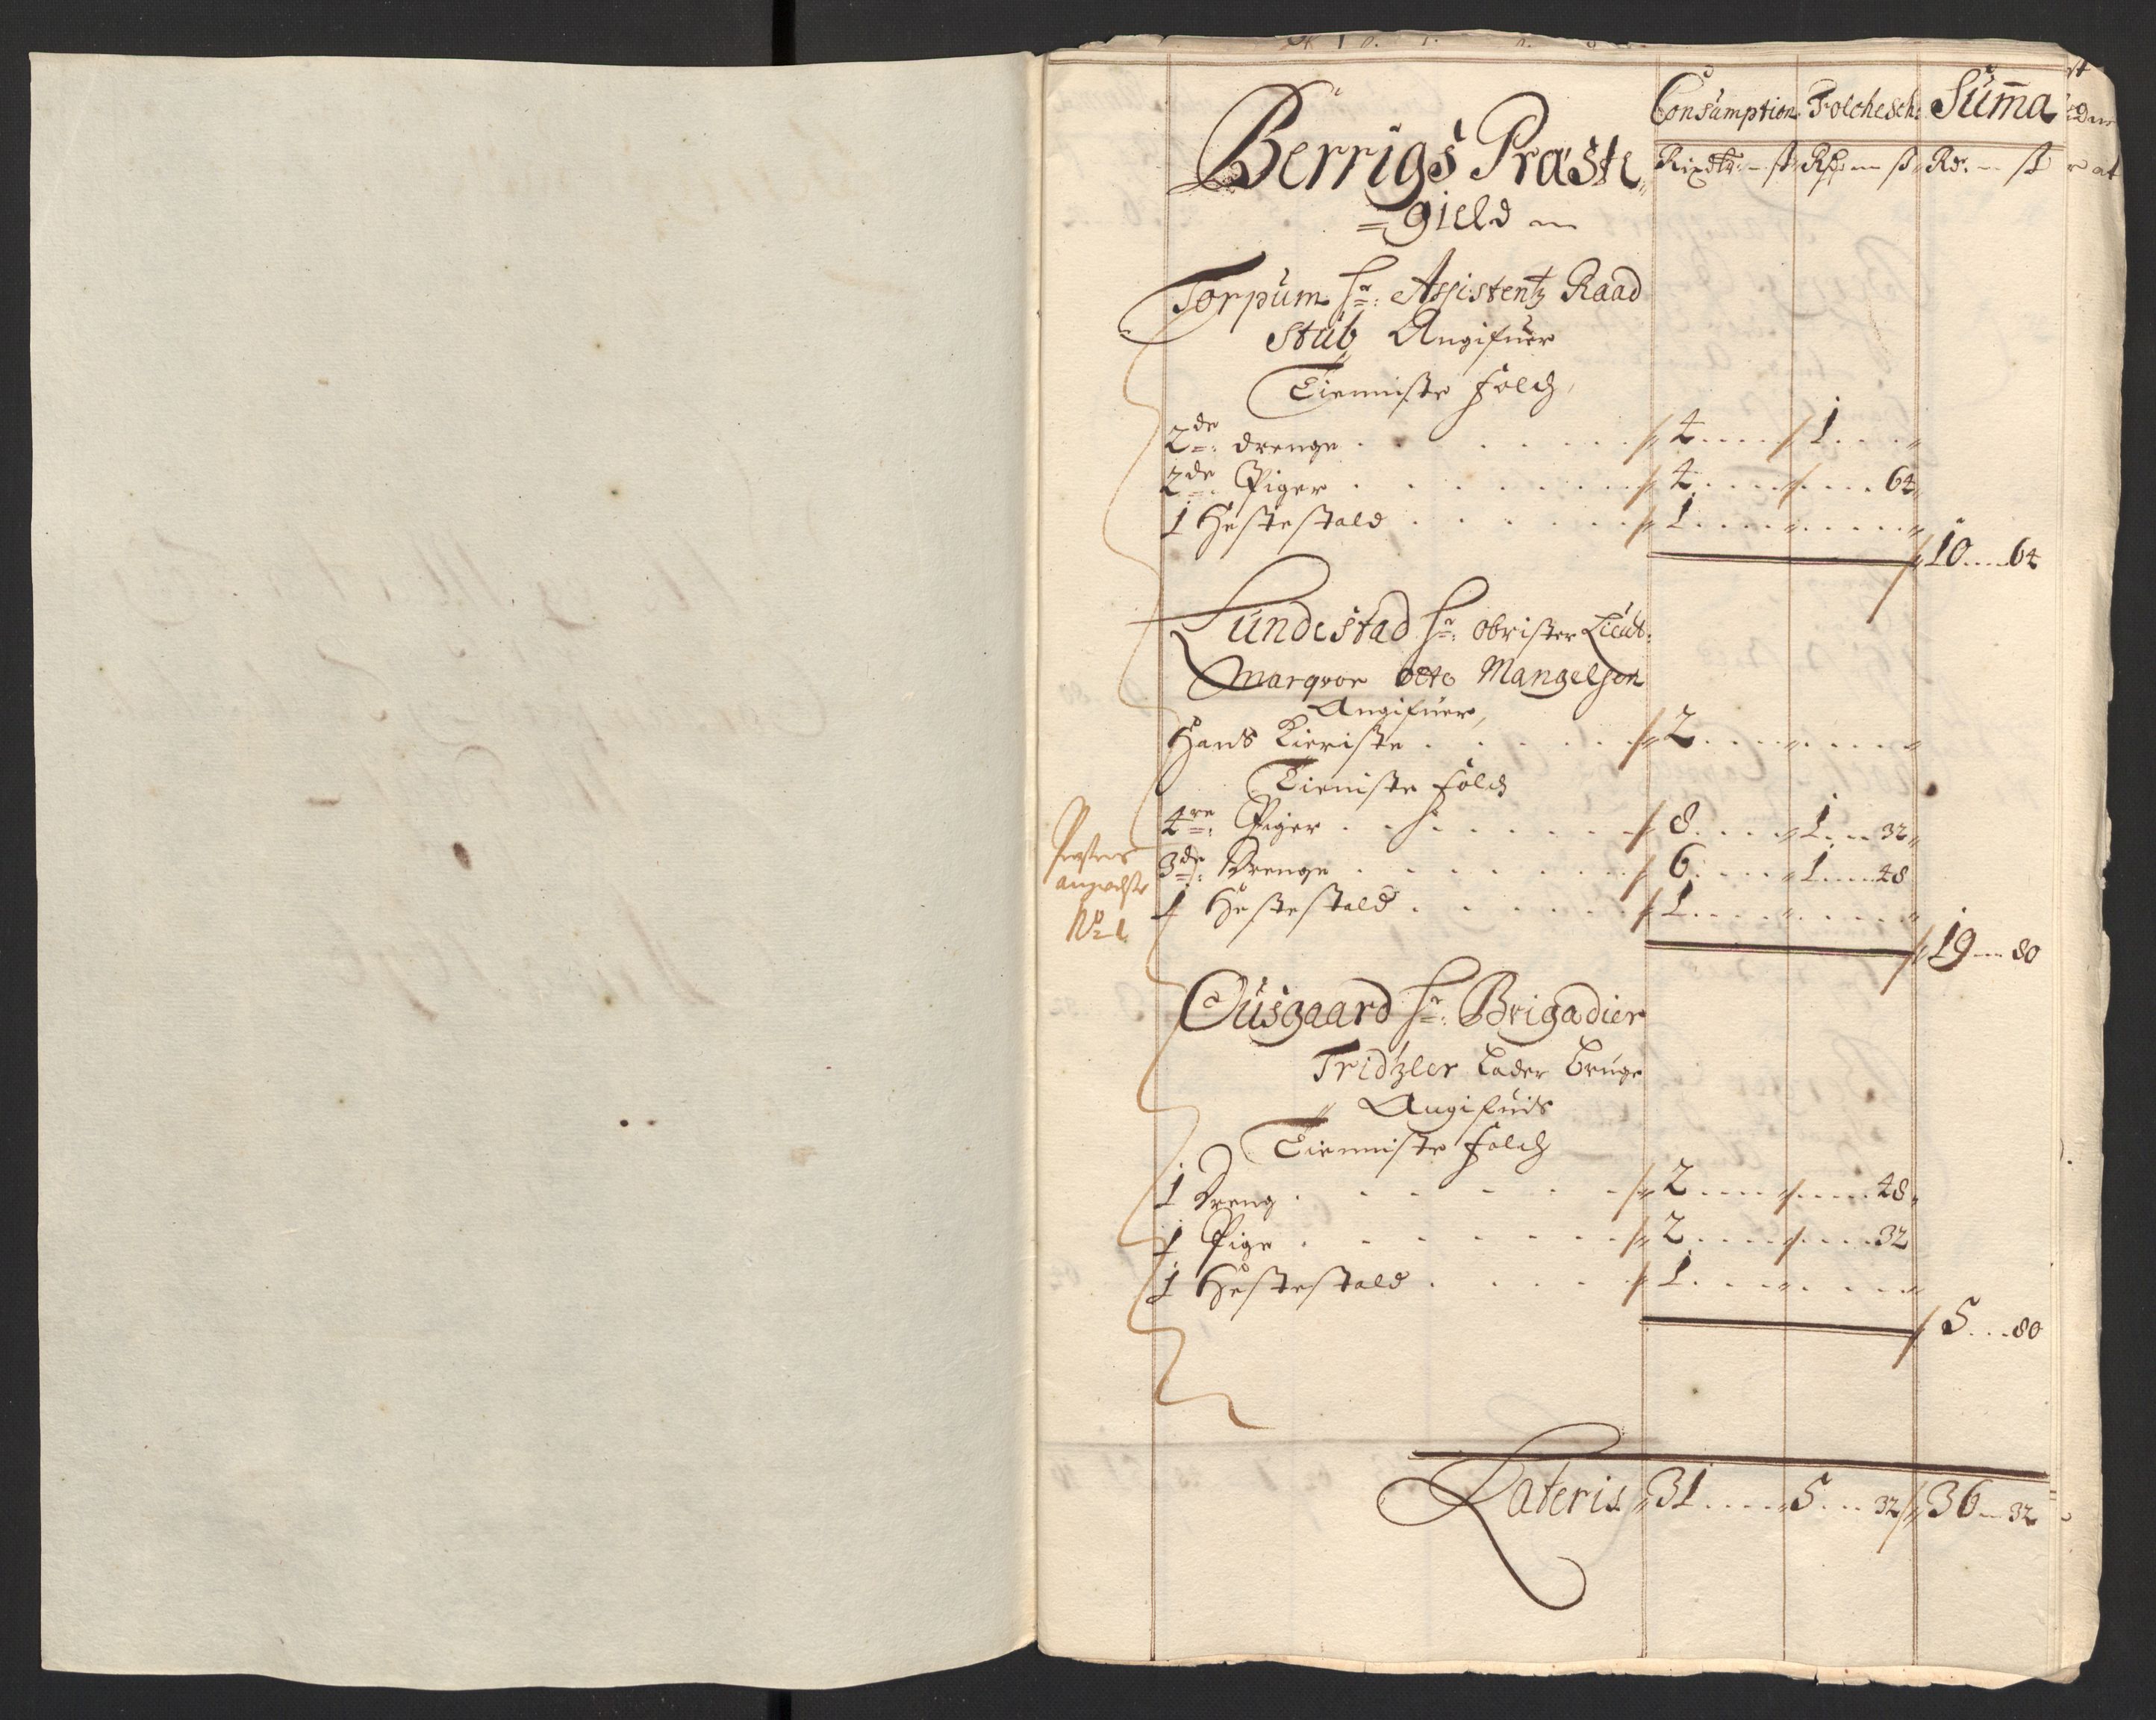 Consumption Folchesch: Suma
Berrigs Præste
Rixdlr: — ß Rdr — ß Rdr. — ß
=gield
Torpum hr: Assistentz Raad
Stub Angifuer
Tienniste folch,
2de: drenge . . . 4 . . . 1 . . .
2de. Piger . . . 4 . . . 64
1 Hestestald . . . 1 . . .
10 . . . 64
Lundestad hr: obrister Lieut:
Marqvor otto Mangelsen
Angifuer,
Hans Kieriste . . . 2 . . .
Tieniste folch
4re: Piger . . . 8 . . . 1 . . . 32
3de: Drenge . . . 6 . . . 1 . . . 48
1 Hestestald . . . 1 . . .
19 — 80
No 1
Ousgaard hr: Brigadier
Tridzler Lader bruge
Angifuis
Tienniste folch
1 Dreng . . . 2 . . . 48
1 Pige . . . 2 . . . 32
1 Hestestald . . . 1 . . .
5 . . . 80
Lateris 31 . . . 5 . . . 32 36 — 32